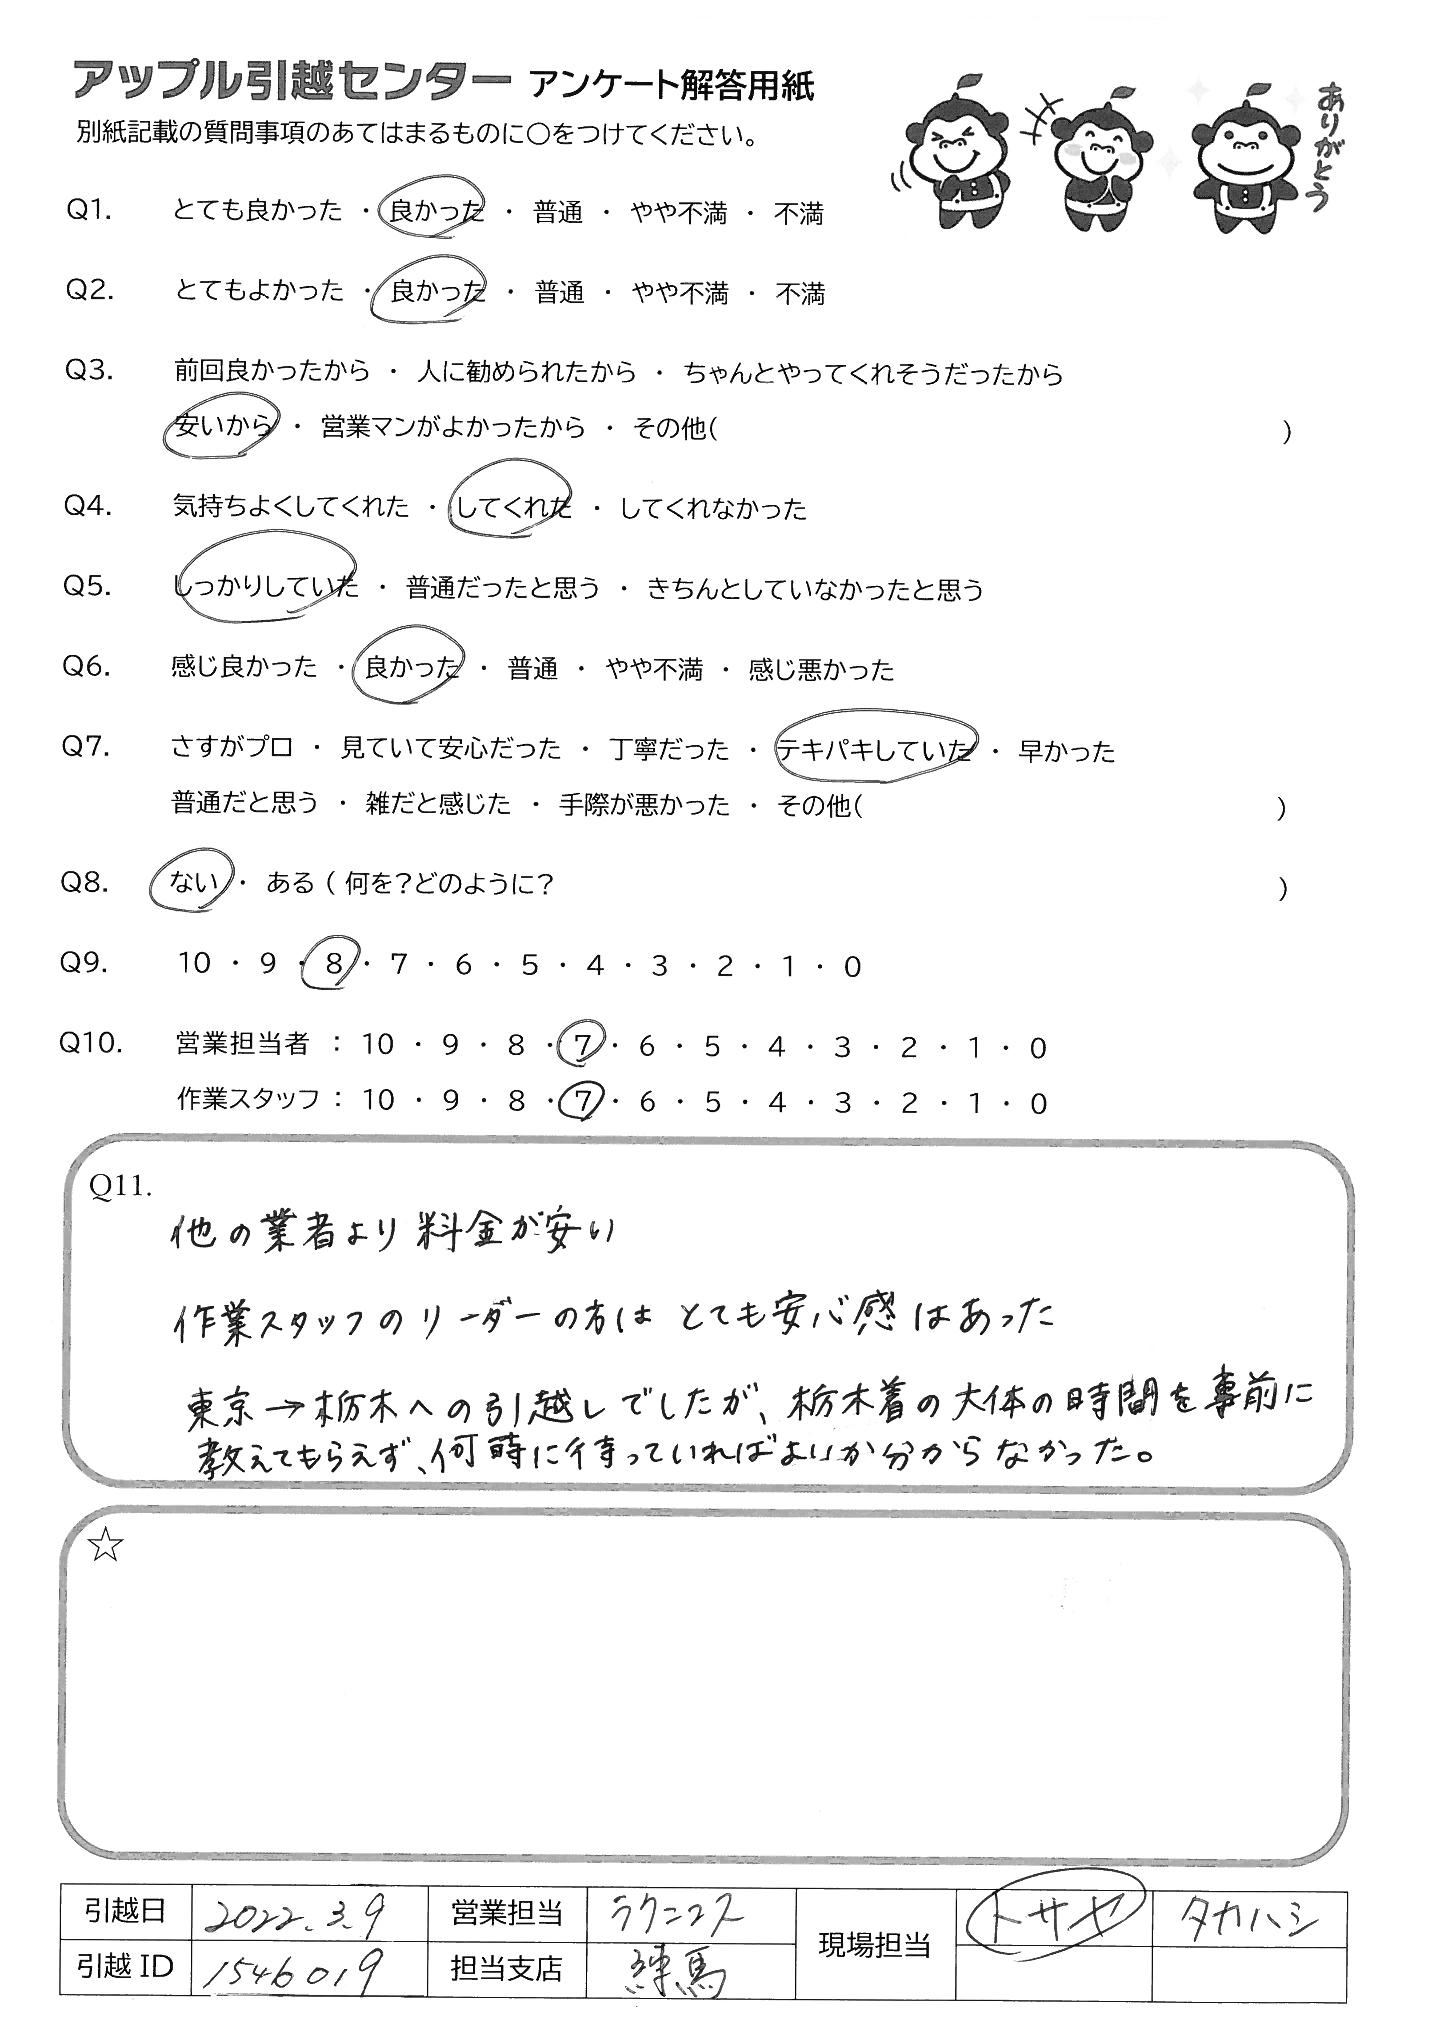 アップル引越センター アンケート解答用紙
別紙記載の質問事項のあてはまるものに○をつけてください。
ありがとう
Q1. とても良かった ・ 良かった ・ 普通 ・ やや不満 ・ 不満
Q2. とてもよかった ・ 良かった ・ 普通 ・ やや不満 ・ 不満
Q3. 前回良かったから ・ 人に勧められたから ・ ちゃんとやってくれそうだったから
安いから ・ 営業マンがよかったから ・ その他( )
Q4. 気持ちよくしてくれた ・ してくれた ・ してくれなかった
Q5. しっかりしていた ・ 普通だったと思う ・ きちんとしていなかったと思う
Q6. 感じ良かった ・ 良かった ・ 普通 ・ やや不満 ・ 感じ悪かった
Q7. さすがプロ ・ 見ていて安心だった ・ 丁寧だった ・ テキパキしていた ・ 早かった
普通だと思う ・ 雑だと感じた ・ 手際が悪かった ・ その他( )
Q8. ない ・ ある ( 何を?どのように? )
Q9. 10 ・ 9 ・ 8 ・ 7 ・ 6 ・ 5 ・ 4 ・ 3 ・ 2 ・ 1 ・ 0
Q10. 営業担当者 : 10 ・ 9 ・ 8 ・ 7 ・ 6 ・ 5 ・ 4 ・ 3 ・ 2 ・ 1 ・ 0
作業スタッフ : 10 ・ 9 ・ 8 ・ 7 ・ 6 ・ 5 ・ 4 ・ 3 ・ 2 ・ 1 ・ 0
Q11.
他の業者より料金が安い
作業スタッフのリーダーの方は とても安心感はあった
東京→栃木への引越しでしたが、栃木着の大体の時間を事前に
教えてもらえず、何時に待っていればよいか分からなかった。
☆
引越日 2022.3.9 営業担当 ラクニコス 現場担当 トサヤ タカハシ
引越ID 1546019 担当支店 練馬